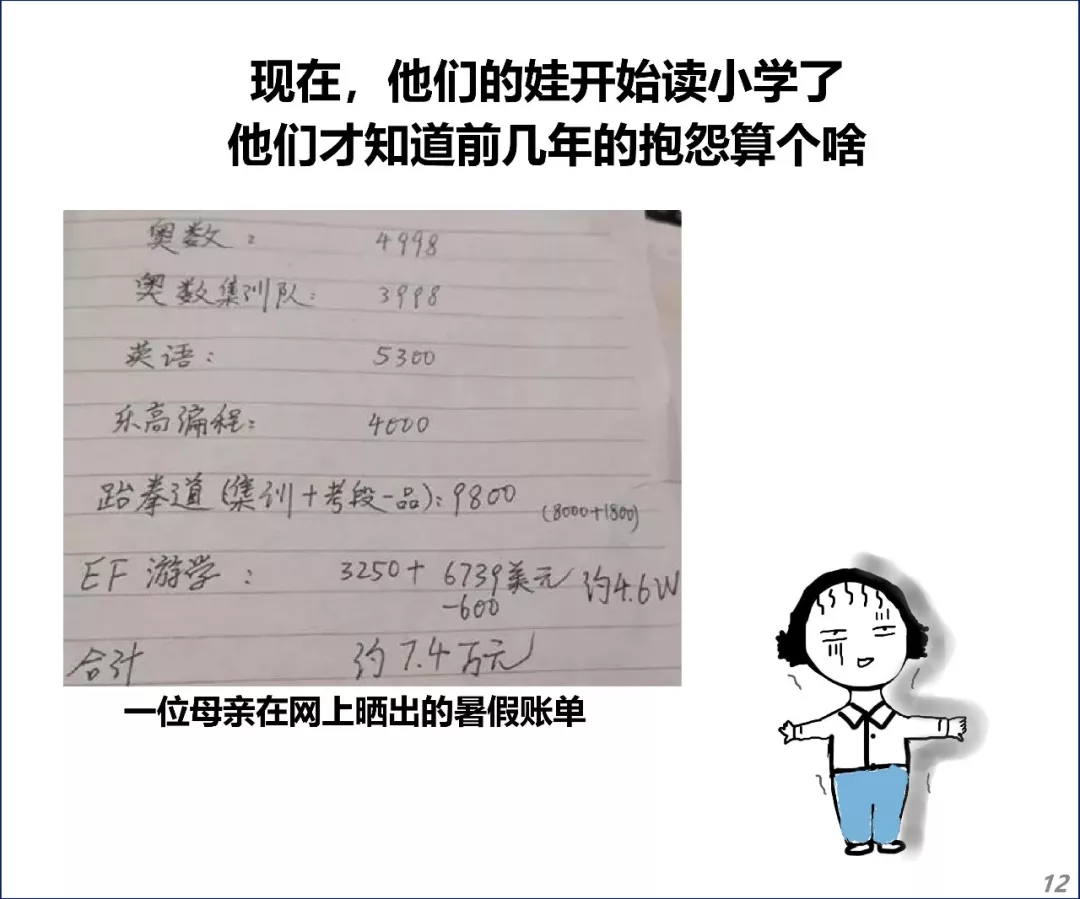 现在，他们的娃开始读小学了
他们才知道前几年的抱怨算个啥
奥数： 4998
奥数集训队： 3998
英语： 5300
乐高编程： 4000
跆拳道（集训+考段一品）：9800 （8000+1800）
EF 游学： 3250+ 6739美元 约4.6W
-600
合计 约7.4万元
一位母亲在网上晒出的暑假账单
12